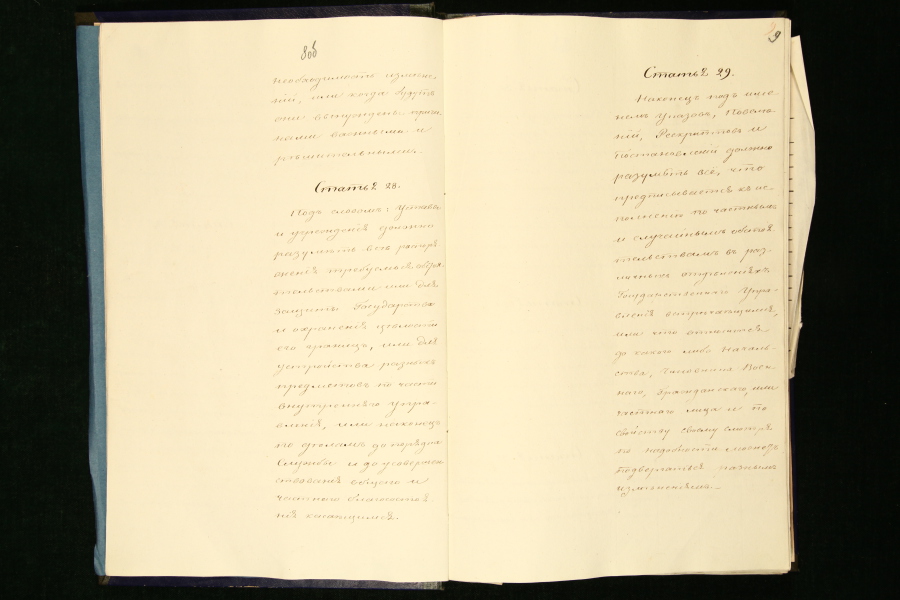 8об
необходимость измѣне-
ній, или когда будутъ
они вынуждены причи-
нами важными и
рѣшительными.
Статья 28.
Подъ словомъ: Уставы
и учрежденія должно
разумѣть всѣ распоря
женія требуемыя обстоя
тельствами или для
защиты Государства
и охраненія цѣлости
его границъ, или для
устройства разныхъ
предметовъ по части
внутренняго Упра-
вленія, или наконецъ
по дѣламъ до порядка
Службы и до усовершен
ствованія общаго и
частнаго благосостоя
нія касающимся.
9
Статья 29.
Наконецъ подъ име-
немъ Указовъ, Повелѣ-
ній, Рескриптовъ и
Постановленій должно
разумѣть все, что
предписывается къ ис-
полненію по частнымъ
и случайнымъ обстоя
тельствамъ въ раз-
личныхъ отдѣленіяхъ
Государственнаго Упра-
вленія встрѣчающимся,
или что относится
до какого либо Началь-
ства, Чиновника Воен-
наго, Гражданскаго, или
частнаго лица и по
свойству своему смотря
по надобности можетъ
подвергаться разнымъ
измѣненіямъ.